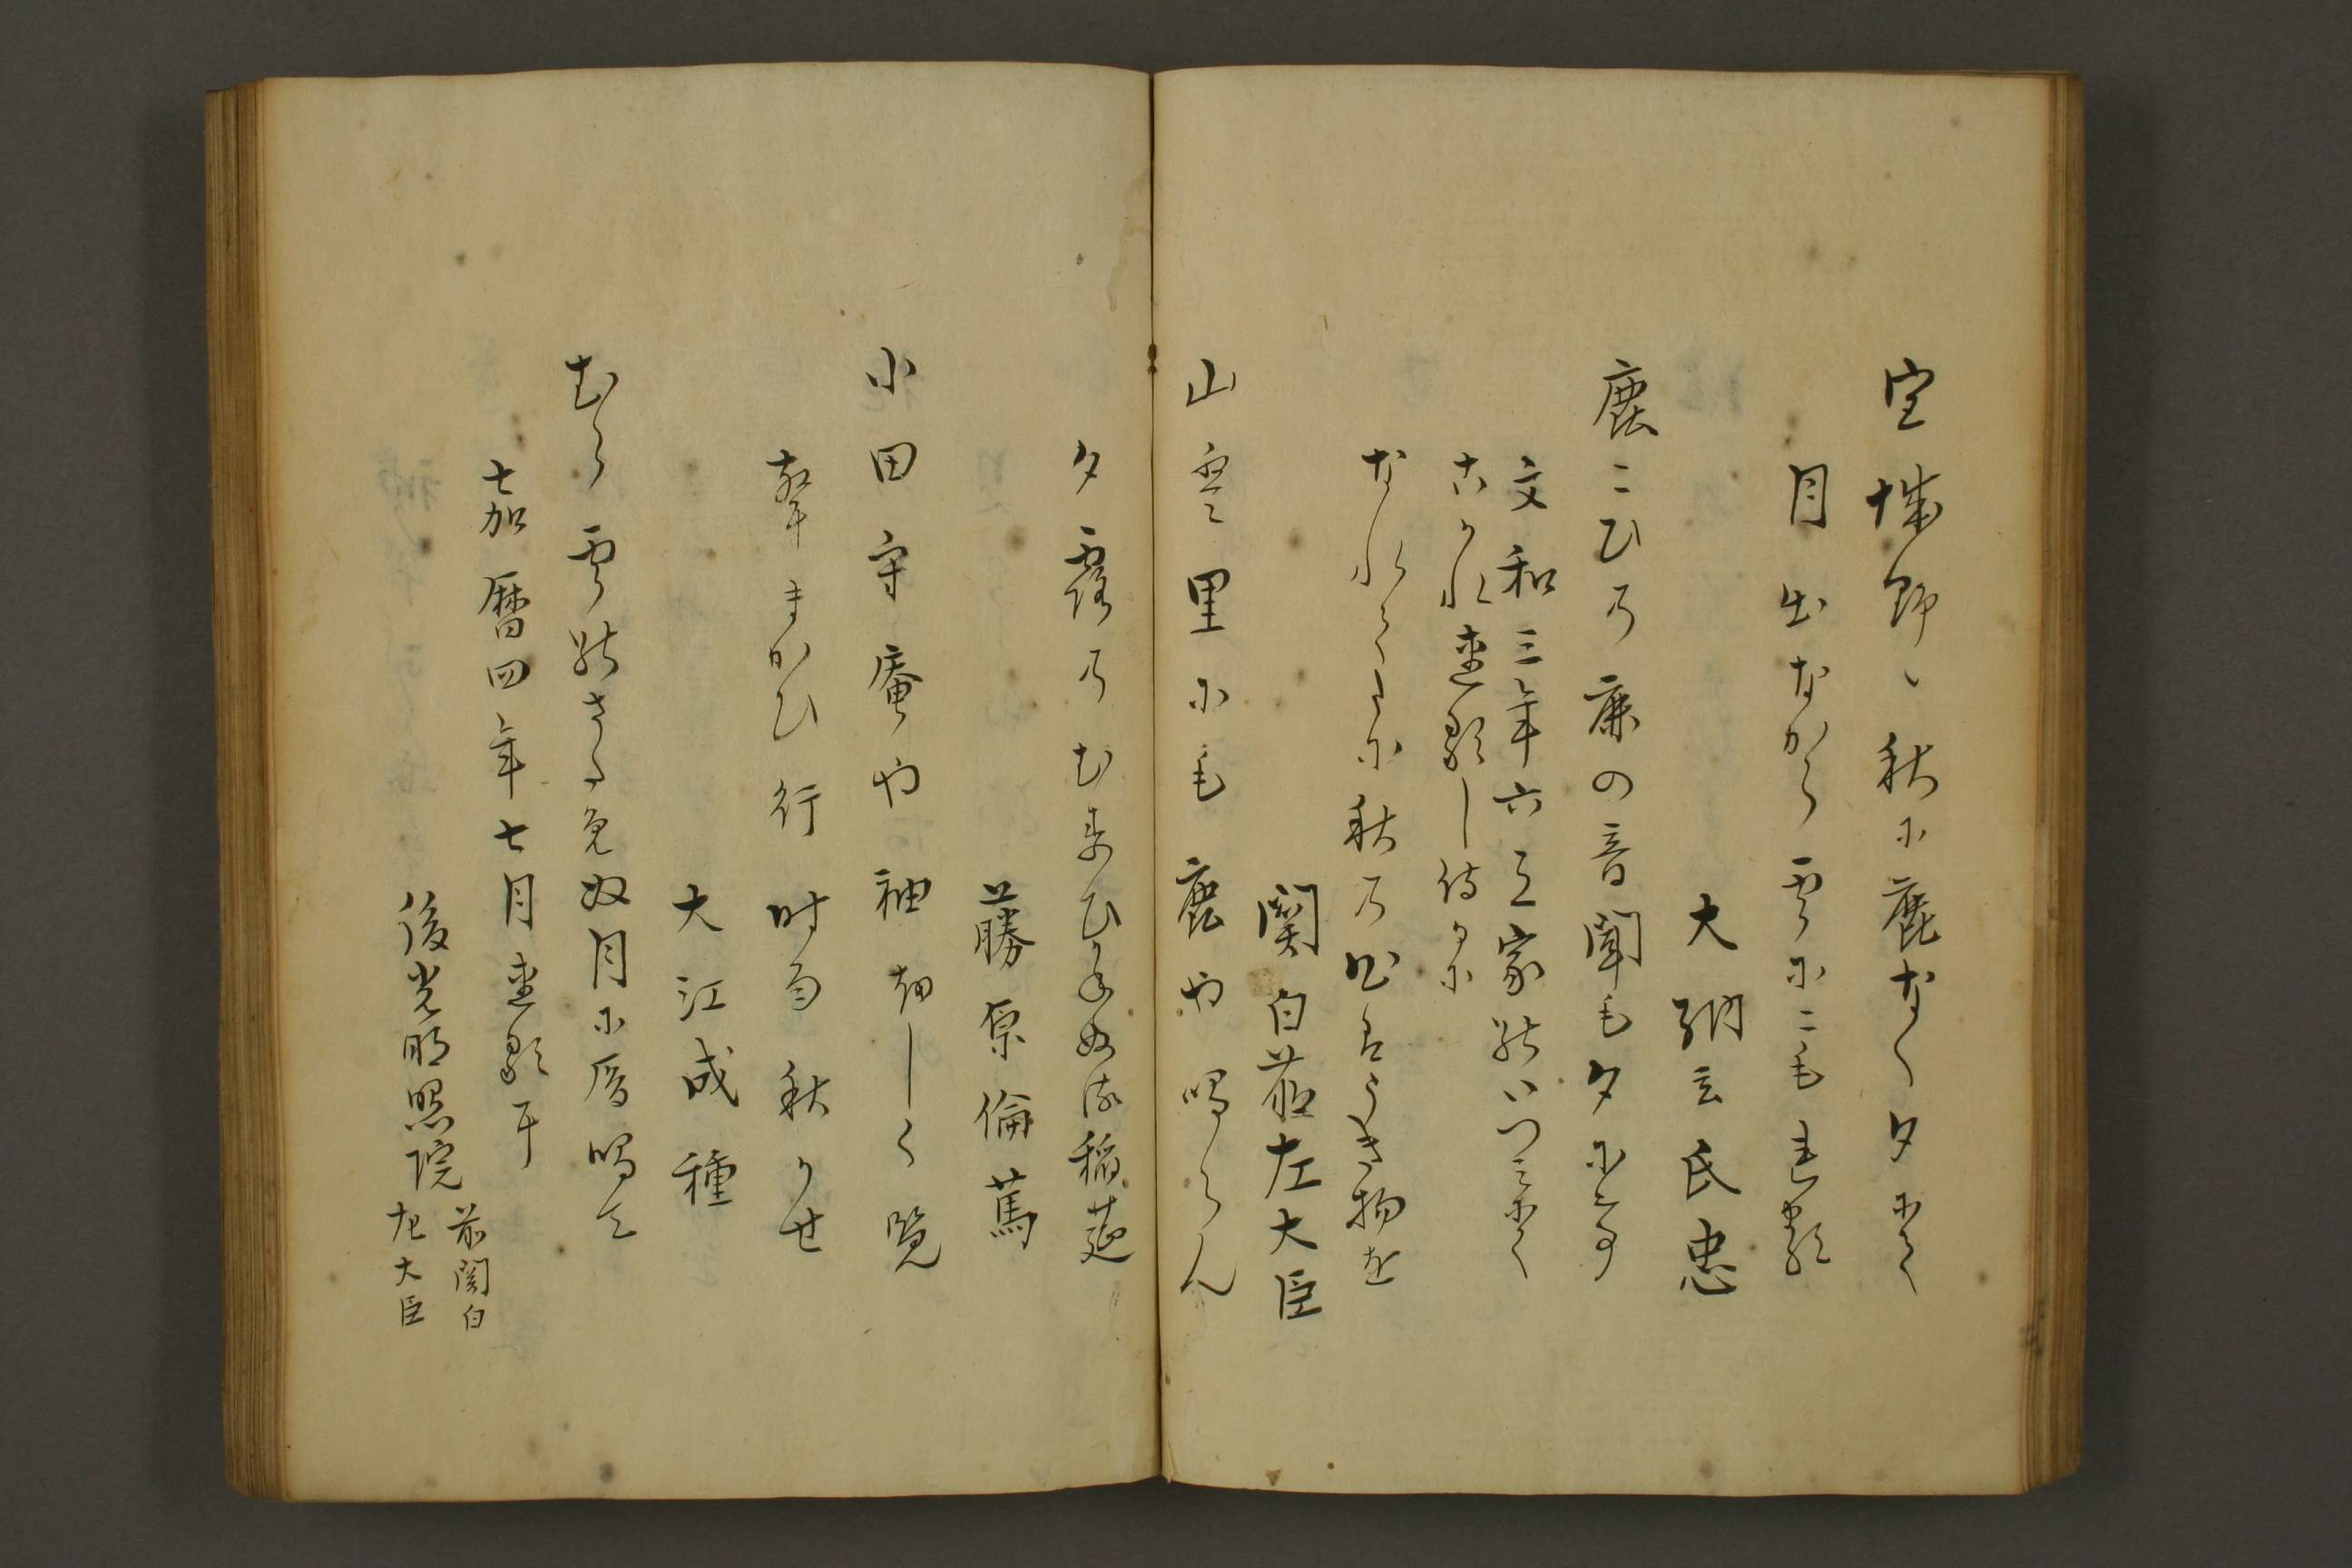 宮城野ゝ秋に鹿なく夕にて
月出なから雲にこもれる
大納言氏忠
鹿こひの鹿の音聞も夕にて
文和三年六月家のいつみにて
古かれ連歌し侍りに
なれてたに秋の心はうき物を
関白前左大臣
山里にも鹿や鳴らん
夕露のむすひかねぬる稲莚
藤原倫篤
小田守庵や袖ほしく覧
峯まかひ行時雨秋かせ
大江成種
むら雲のさためぬ月に鴈鳴て
嘉暦四年七月連歌に
後光明照院 前関白
左大臣